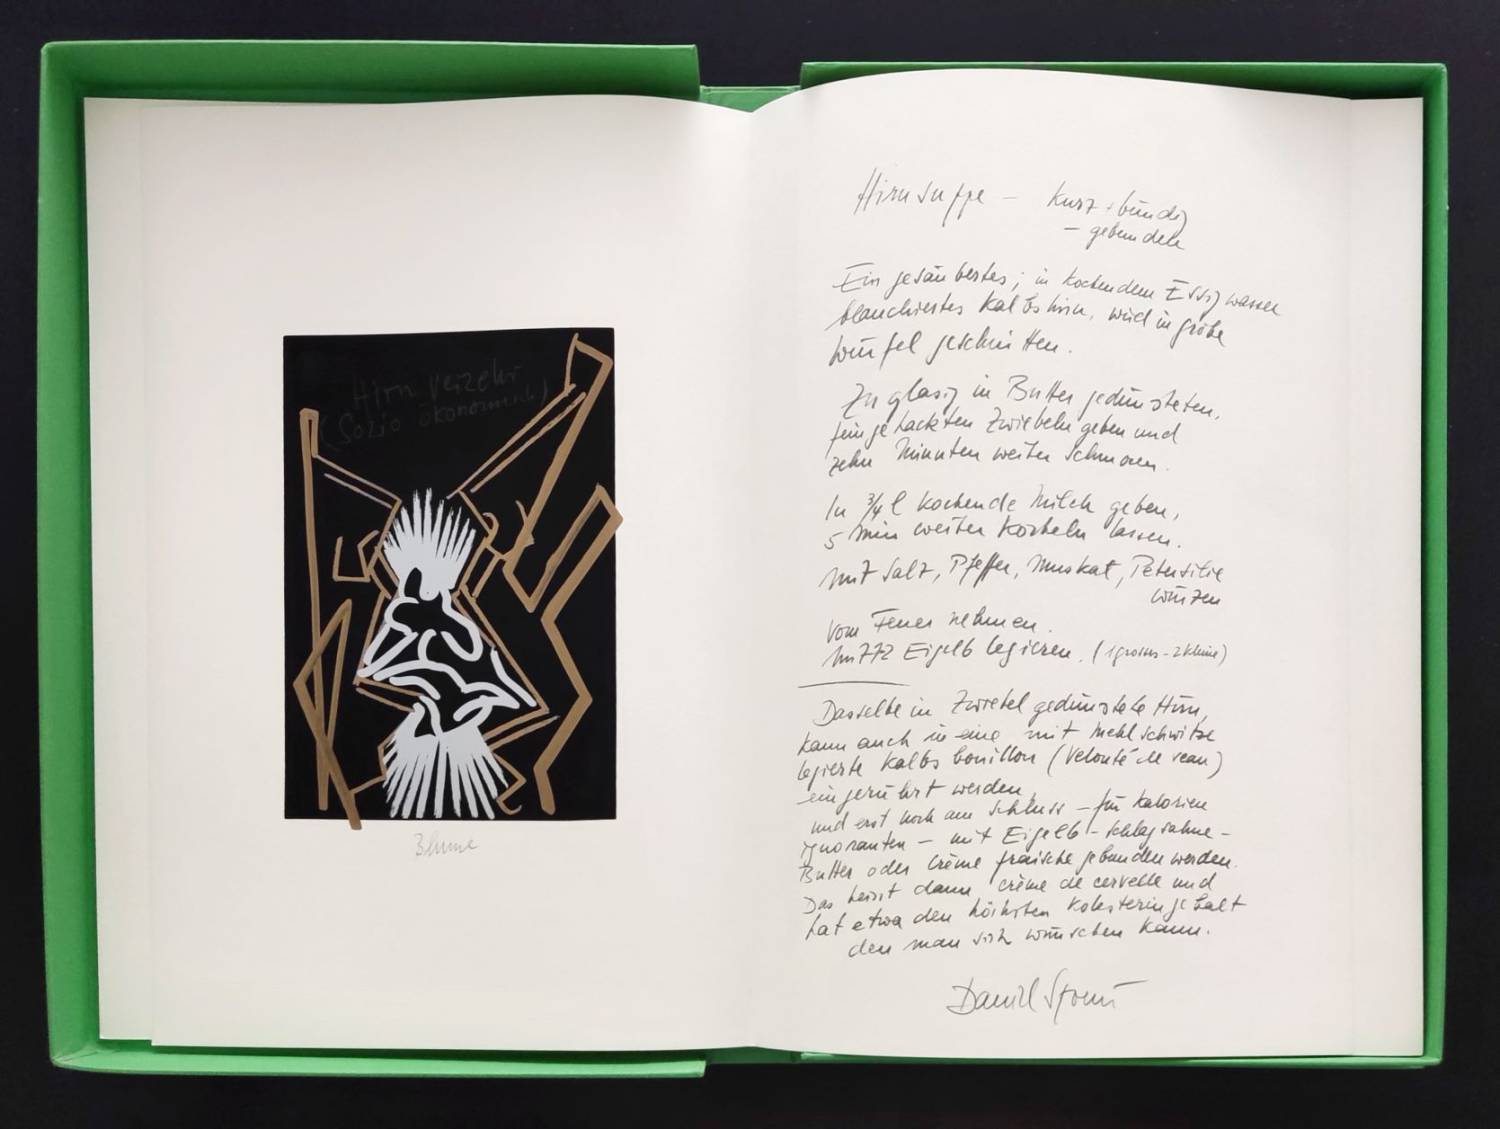 Hirn verzehr
(Sozio ökonomisch)
Blume
Hirnsuppe – kurz + bündig
– gebunden
Ein gesäubertes, in kochendem Essigwasser
blanchiertes Kalbshirn, wird in grobe
Würfel geschnitten.
Zu glasig in Butter gedünsteten,
fein gehackten Zwiebeln geben und
zehn Minuten weiter schmoren.
In 3/4 l kochende Milch geben,
5 min weiter köcheln lassen.
Mit Salz, Pfeffer, Muskat, Petersilie
würzen
Vom Feuer nehmen.
Mit Eigelb legieren. (1 grosses – 2 kleine)
Dasselbe in Zwiebel gedünstete Hirn,
kann auch in eine mit Mehlschwitze
legierte Kalbsbouillon (Velouté de veau)
eingerührt werden
und erst noch am Schluss – für Kalorien
ignoranten – mit Eigelb – Schlagsahne –
Butter oder Crème fraîche gebunden werden.
Das heisst dann crème de cervelle und
hat etwa den höchsten Kolesteringehalt
den man sich wünschen kann.
Daniel Spoerri